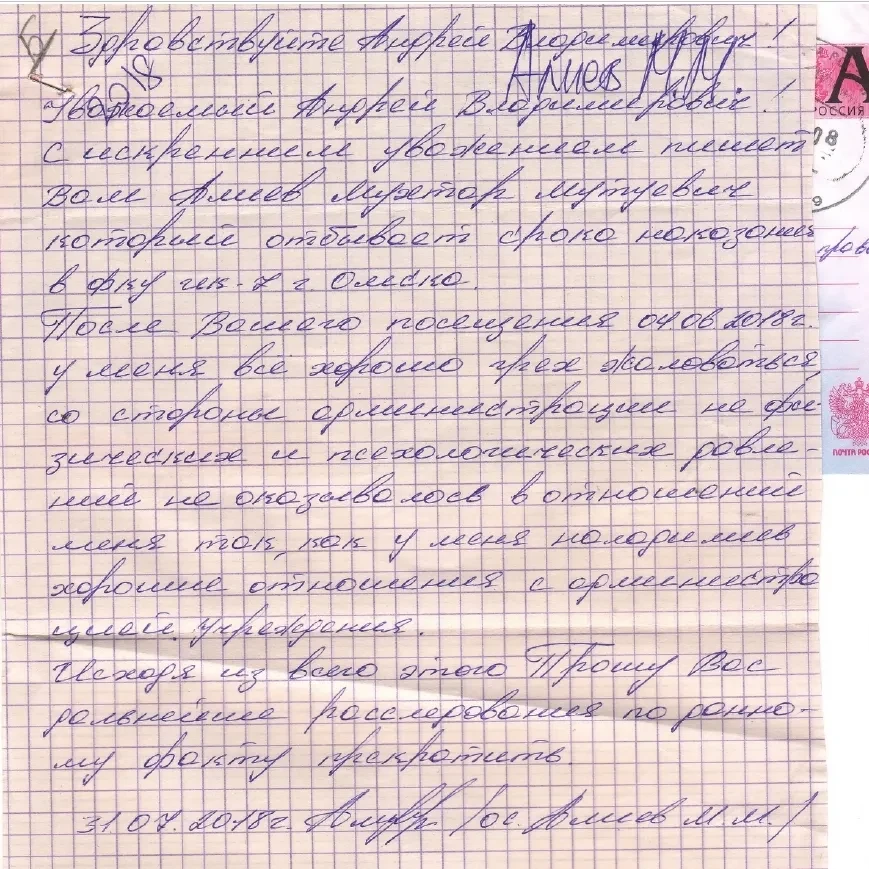 Здравствуйте Андрей Владимирович!
Алиев ММ
Уважаемый Андрей Владимирович!
с искренним уважением пишет
Вам Алиев Мухтар Мутуевич
который отбывает срока наказания
в фку ик-7 г. Омска.
После Вашего посещения 04 06 2018г.
у меня всё хорошо грех жаловаться,
со стороны администрации не фи-
зических и психологических давле-
ний не оказывалось в отношений
меня так, как у меня наладимиев
хорошие отношения с администра
цией. учреждения.
Исходя из всего этого Прошу Вас
дальнейшие расследования по данно-
му факту прекратить.
31 07. 2018г. /ос. Алиев М.М./
А
РОССИЯ
08
9
ПОЧТА РОС